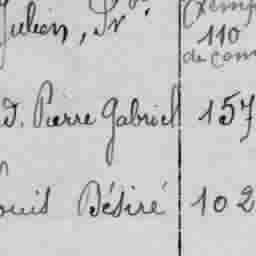 Julien, Sr.
110
d. Pierre Gabriel 157
ouis Désiré 102